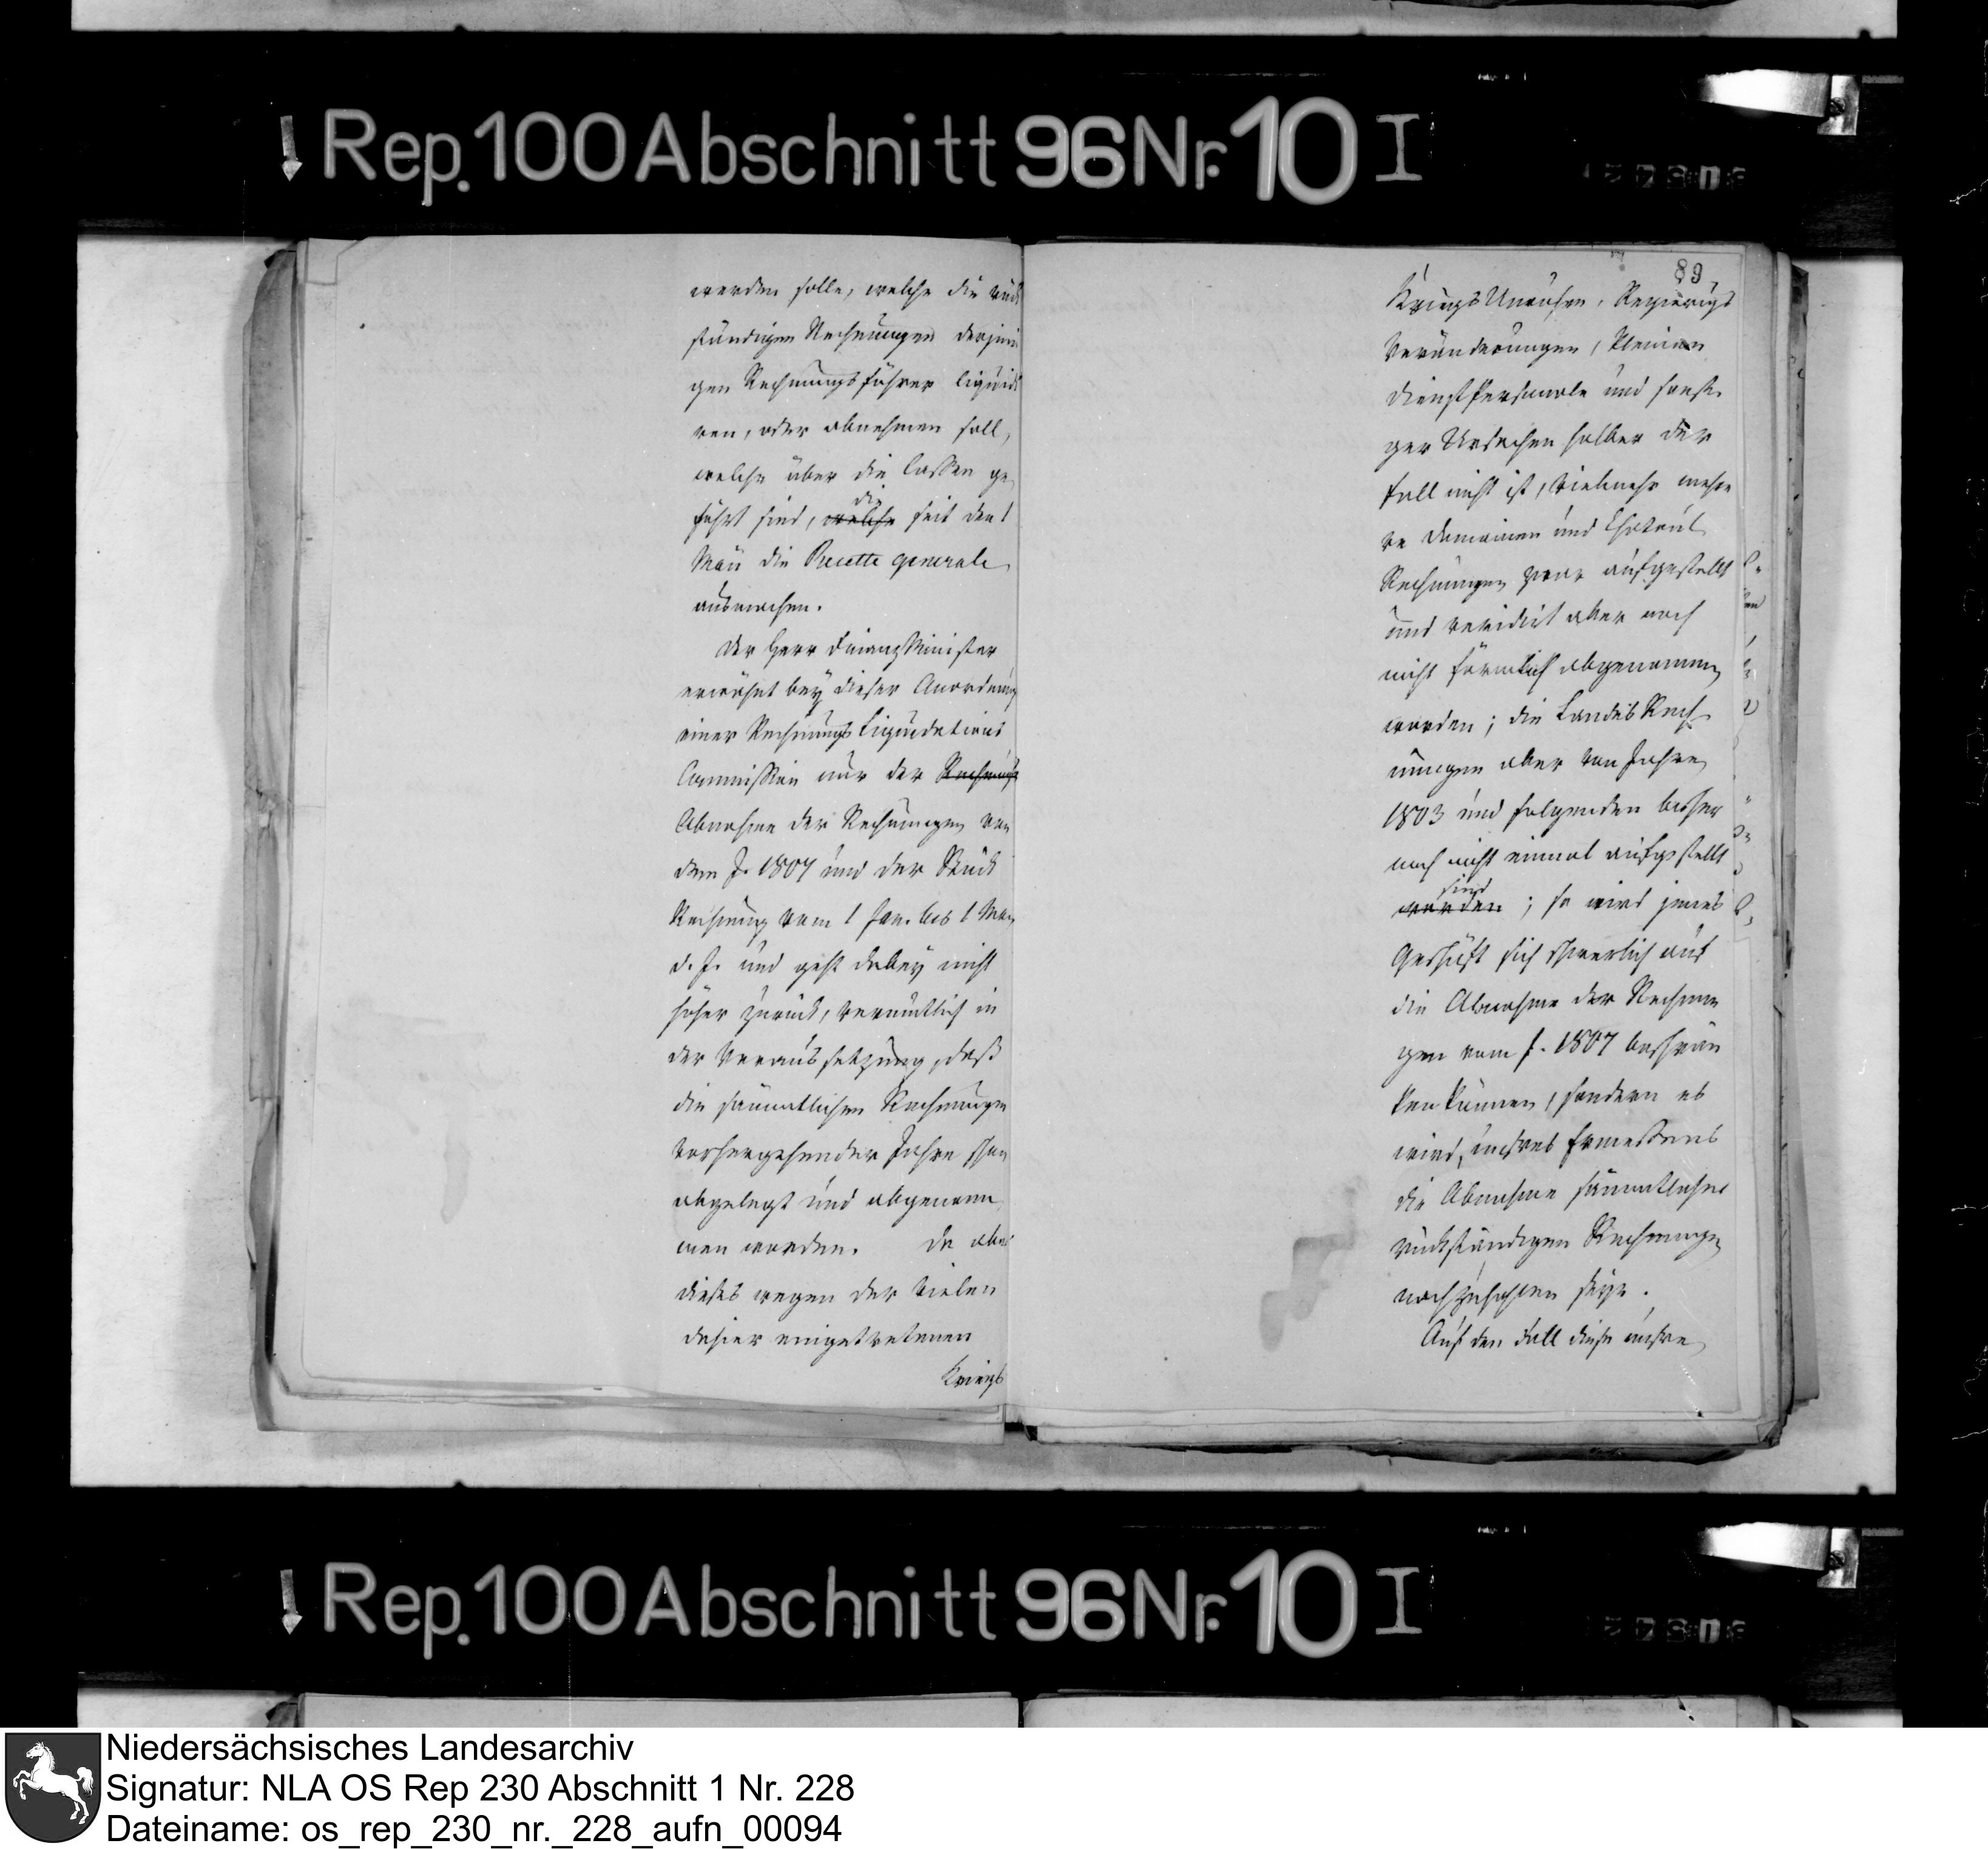 Rep. 100 Abschnitt 96 Nr. 10 I
werden solle, welche die rück
ständigen Rechnungen derjeni
gen Rechnungsführer liquidi
ren, oder abnehmen soll,
welche über die Cassen ge
führt sind, welche die seit den 1
May die Recette generale
ausmachen.
Der Herr Finanz Minister
erwähnt bey dieser Anordnung
einer Rechnungs Liquidations
Commission nur der Rechnungs
Abnahme der Rechnungen von
dem J. 1807 und der Stück
Rechnung vom 1 Jan. bis 1 May
d. J. und geht dabey nicht
höher zurück, vermutlich in
der Voraussetzung, daß
die sämmtlichen Rechnungen
vorhergehender Jahre schon
abgelegt und abgenom
men worden. Da aber
dieses wegen der vielen
dahier eingetretenen
Kriegs
89
Kriegs Unruhen, Regierungs
Veränderungen, kleinen
Dienst Personale und sonsti
ger Ursachen halber der
Fall nicht ist, vielmehr mehre
re Domainen und Chatoul
Rechnungen zwar aufgestellt
und revidirt aber noch
nicht förmlich abgenommen
worden; die Landes Rech
nungen aber von Jahre
1803 und folgenden bisher
noch nicht einmal aufgestellt
worden sind; so wird jenes
Geschäft sich schwerlich auf
die Abnahme der Rechnun
gen vom J. 1807 beschrän
ken können, sondern es
wird, unsres Ermessens
die Abnahme sämmtlicher
rückständigen Rechnungen
nachzuholen seye.
Auf den Fall diese unsre
Rep. 100 Abschnitt 96 Nr. 10 I
Niedersächsisches Landesarchiv
Signatur: NLA OS Rep 230 Abschnitt 1 Nr. 228
Dateiname: os_rep_230_nr._228_aufn_00094